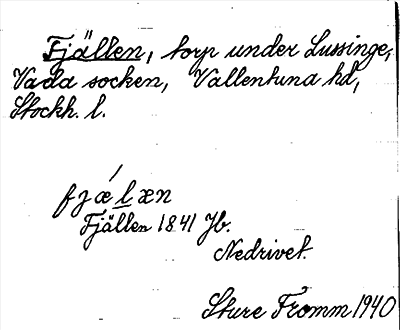 Fjällen, torp under Lussinge,
Vada socken, Vallentuna hd,
Stockh. l.
fjǽlæn
Fjällen 1841 Jb.
Nedrivet.
Sture Fromm 1940